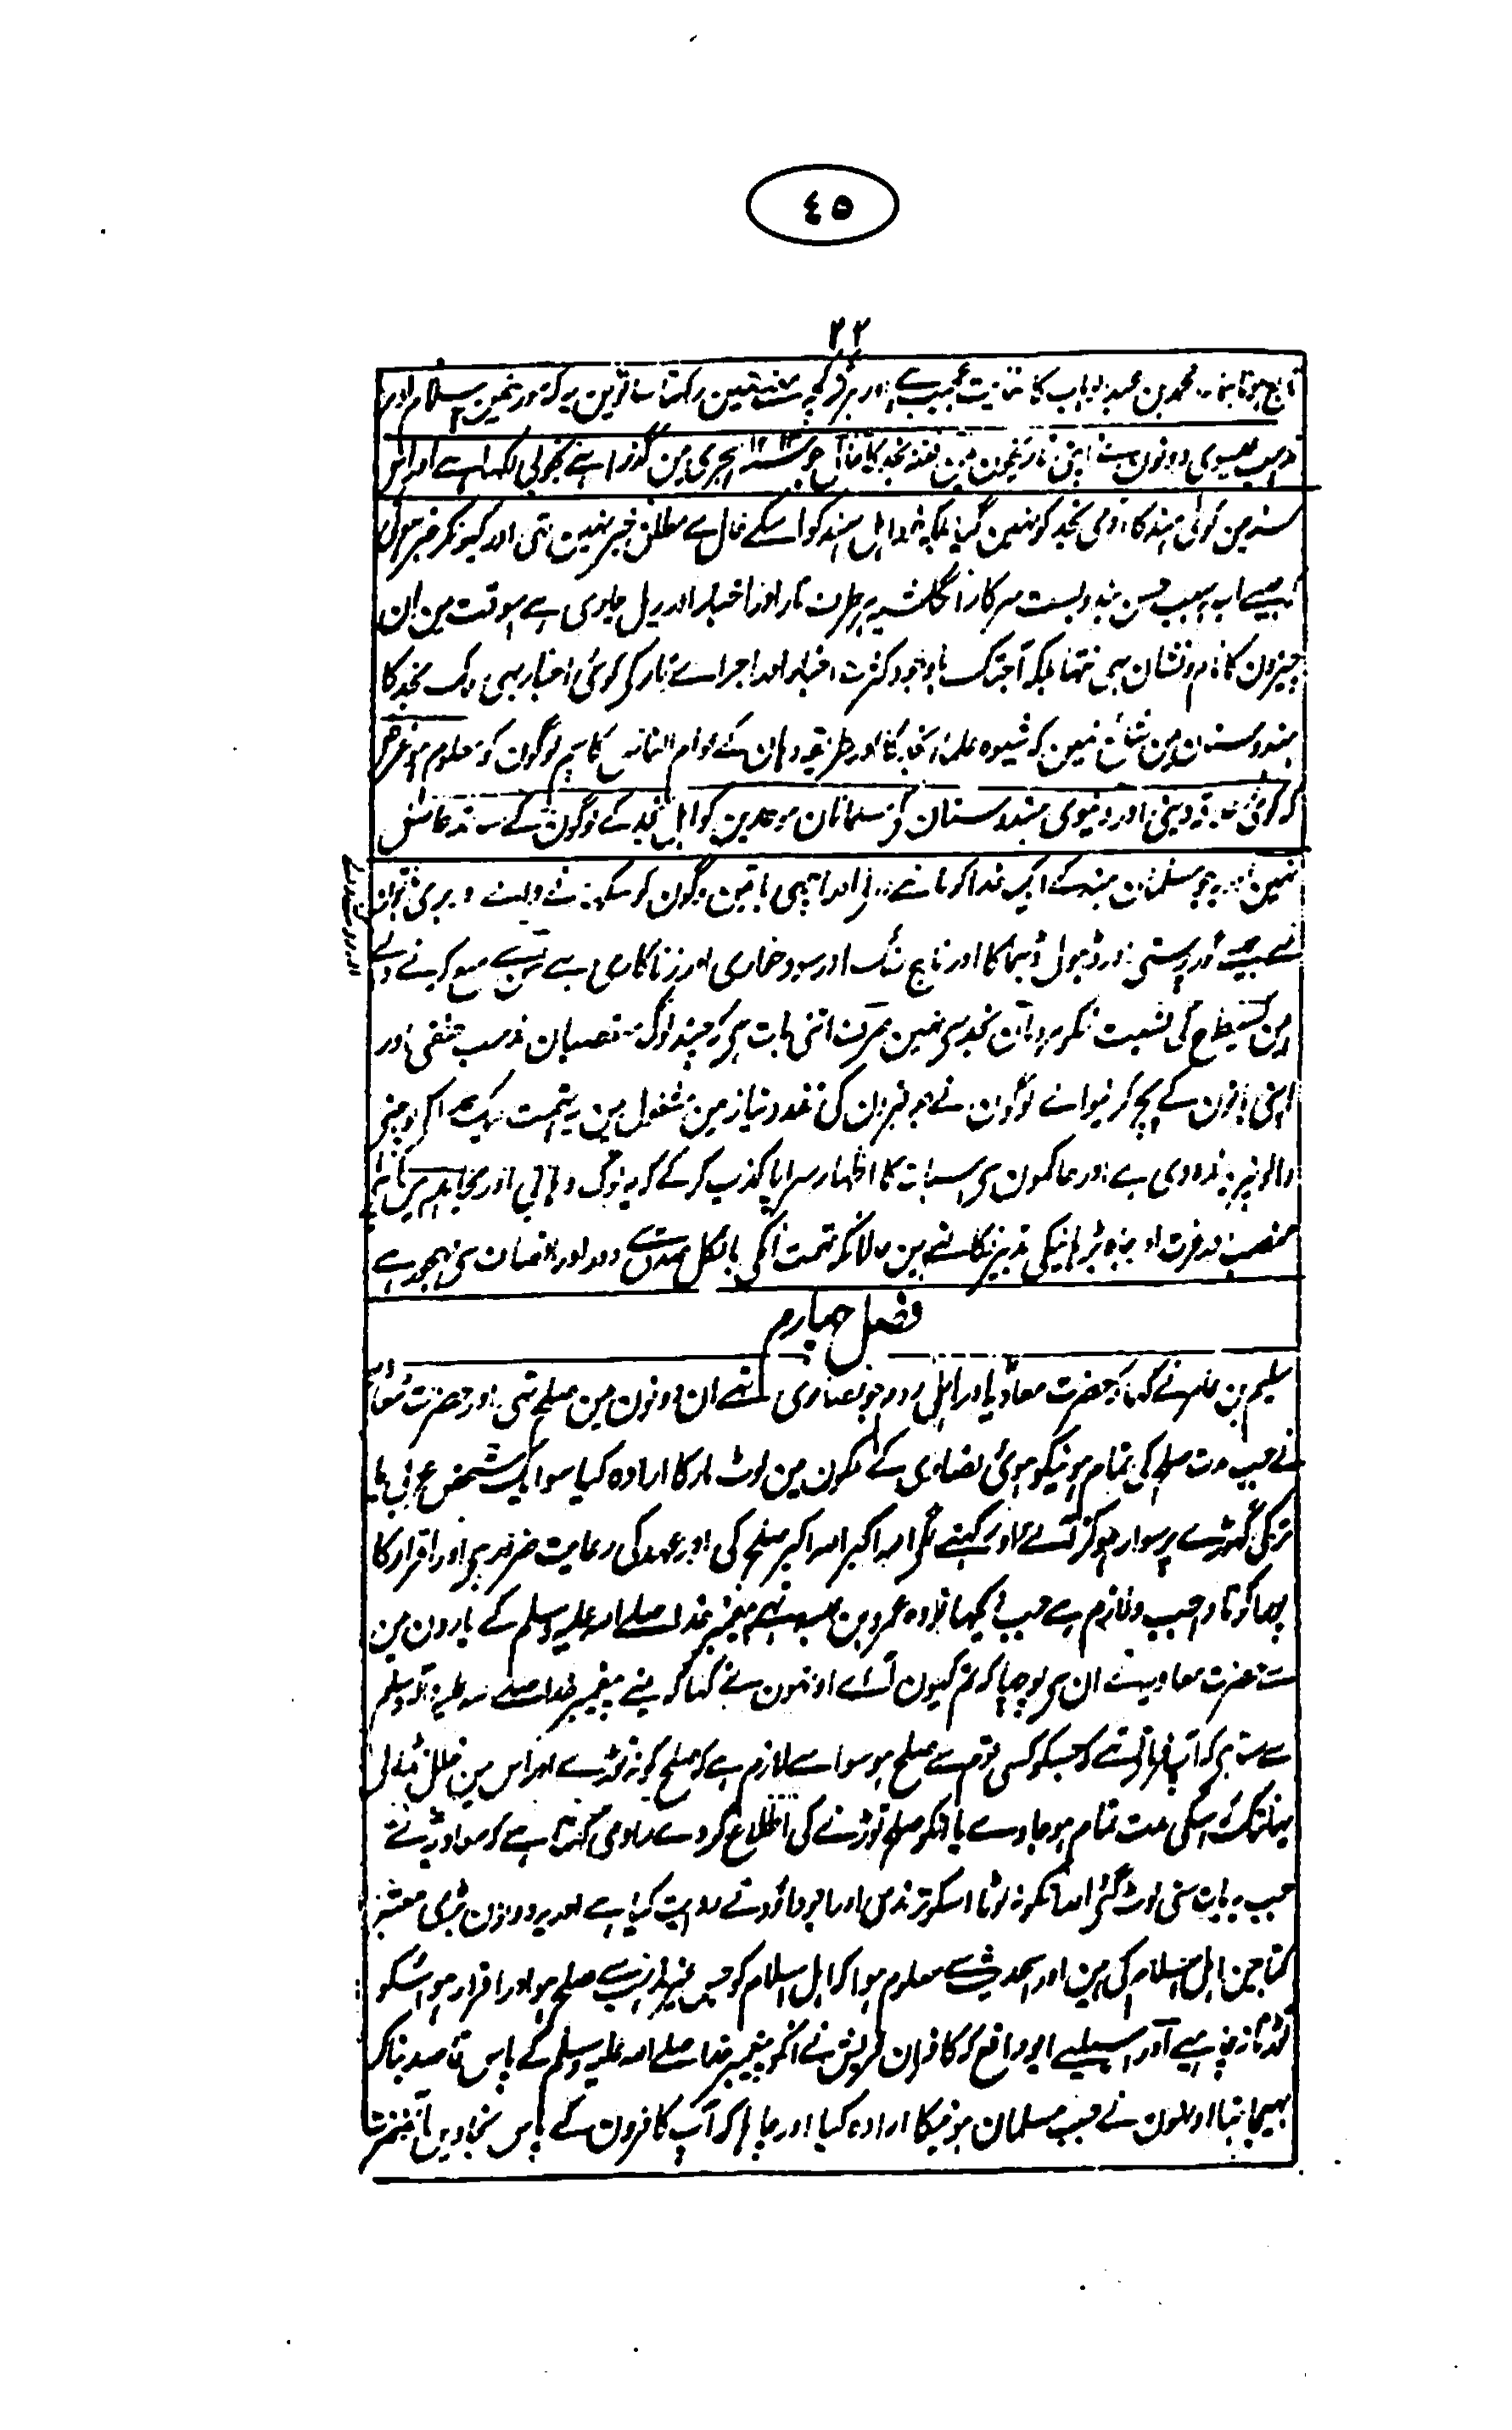 ٤٥
٢٢
محمد بن عبد الوہاب کا نہایت عجیب ہے اور
مذہب عیسوی دونون نے اپنی تاریخون مین فتنہ نجد کا حال جو سنہ ہجری مین گذرا ہے بخوبی لکہا ہے اور اس
سنہ مین کوئی ہند کا آدمی نجد کو نہین گیا بلکہ اہل ہند کو اسکے حال سے مطلق خبر نہین تہی اور کیونکر خبر ہوتی
جیسے اب بسبب حسن بندوبست سرکار انگلشیہ ہر طرف تار اور اخبار اور ریل جاری ہے اسوقت مین ان
چیزون کا نام و نشان بہی نتہا بلکہ آجتک باوجود کثرت اخبار اور اجراے تار کی کوئی اخبار بہی ملک نجد کا
ہندوستان مین شائع نہین کہ شیوہ علماء نجد کا اور طریقہ وہان کے عوام الناس کا ہم لوگون کو معلوم ہو غرض
کہ کوئی علاقہ دینی اور دنیوی ہندوستان کے مسلمانان موحدین کو اہل نجد کے لوگون کے ساتھ حاصل
نہین اور یہ جو مسلمان ہند کے ایک خدا کو ماننے والے اور اچہی باتین لوگون کو سکہانے والے و بری باتون
سے جیسے گور پرستی اور ڈہول ڈہماکا اور ناچ رنگ اور سود خواری اور زناکاری ہے سب سے منع کرنے والے
ہین کسیطرح کی نسبت نکو مردمان نجد سے نہین صرف اتنی بات ہی کہ چند لوگ متعصبان مذہب حنفی اور
اپنی باتون کے پچ کرنیوالے لوگون نے جو قبرون کی نذر و نیاز مین مشغول ہین یہ تہمت
اور حاکمون سے اسبات کا اظہار سراپا کذب کر کے کہ یہ لوگ وہابی اور مجاہد ہین
منصب و عزت اور بڑہانیکی تدبیر نکالتے ہین حالانکہ تہمت انکی بالکل صدق سے دور اور انصاف سے مہجور ہے
فصل چہارم
سلیم بن عامر نے کہا کہ حضرت معاویہ اور اہل روم جو نصاری تہے ان دونون مین صلح تہی اور حضرت معاویہ
نے جب مدت صلح کی تمام ہونیکو ہوئی نصاری کے ملکون مین لوٹ مار کا ارادہ کیا سو ایک شخص عربی یا
ترکی گہوڑے پر سوار ہو کر آئے اور کہنے لگے اللہ اکبر اللہ اکبر صلح کی اور عہد کی رعایت ضرور ہی اور اقرار کا
پورا کرنا واجب و لازم ہے جب دیکہا تو وہ عمرو بن عبسہ تہے پیغمبر خدا صلے اللہ علیہ وسلم کے یارون مین
سے حضرت معاویہ نے ان سے پوچہا کہ تم کیون آئے اونہون نے کہا کہ مینے پیغمبر خدا صلے اللہ علیہ وآلہ وسلم
سے سنا ہی کہ آپ فرماتے تہے کہ جسکو کسی قوم سے صلح ہو سو اسے لازم ہے کہ صلح کو نہ توڑے اور اس مین خلل نڈالے
یہانتک کہ اسکی مدت تمام ہو جاوے یا انکو صلح توڑنے کی اطلاع کر دے راوی کہتا ہے کہ معاویہ نے
جب یہ بات سنی لوٹ گئے اور انکو نہ لوٹا اسکو ترمذی اور ابو داؤد نے روایت کیا ہے اور یہ دونون بڑی معتبر
کتابین اہل اسلام کی ہین اور اسحدیث سے معلوم ہوا کہ اہل اسلام کو جس غیر مذہب سے صلح ہو اور اقرار ہو اسکو
توڑنا نچاہیے اور اسیلیے ابو رافع کو کافران قریش نے انکو پیغمبر خدا صلے اللہ علیہ وسلم کے پاس قاصد بنا کر
بہیجا تہا اونہون نے جب مسلمان ہونیکا ارادہ کیا اور چاہا کہ آپ کافرون کے پاس نجاوین آنحضرت